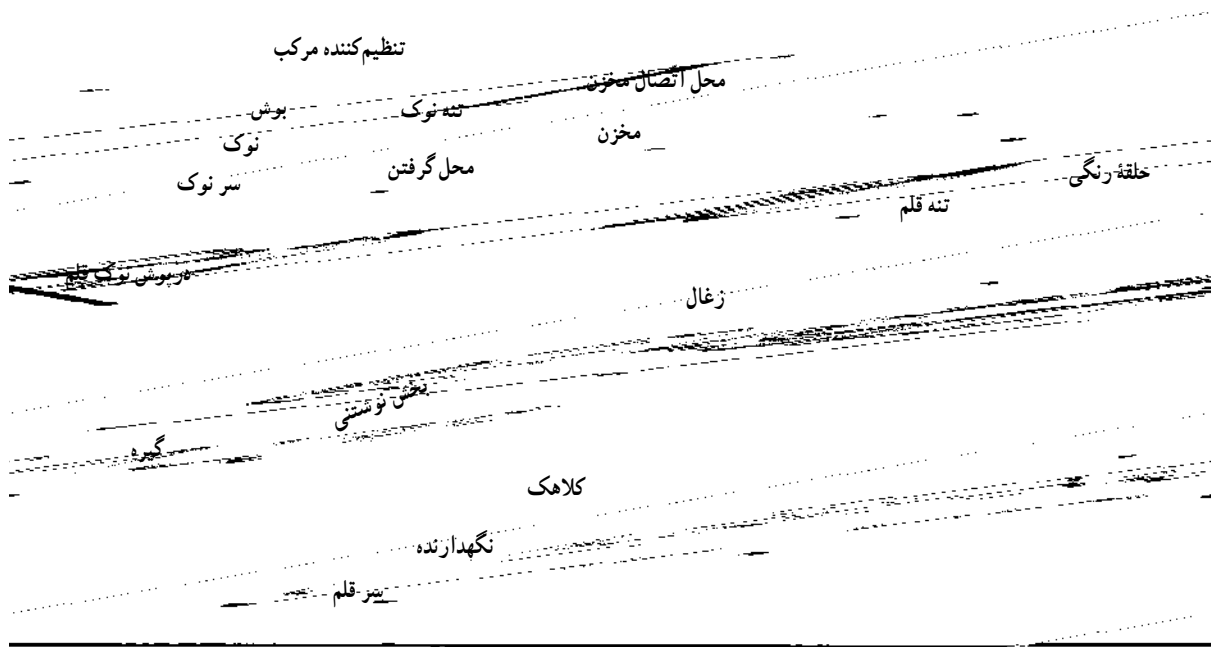 تنظیم‌کننده مرکب
محل اتصال مخزن
بوش
تنه نوک
مخزن
نوک
محل گرفتن
سر نوک
حلقهٔ رنگی
تنه قلم
درپوش نوک قلم
زغال
بخش نوشتنی
گیره
کلاهک
نگهدارنده
سر قلم